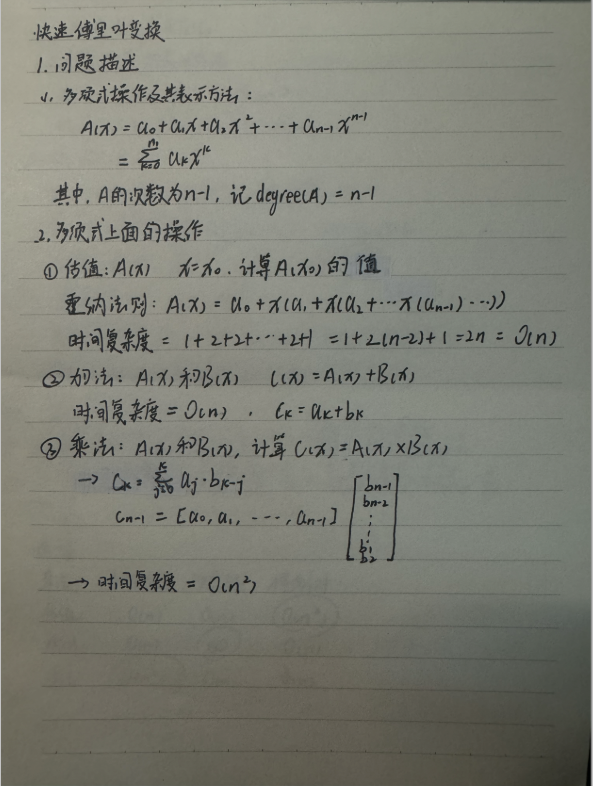 快速傅里叶变换
1. 问题描述
1、多项式操作及其表示方法:
A(x) = a₀+a₁x+a₂x²+···+aₙ₋₁xⁿ⁻¹
= ∑ₖ₌₀ⁿ⁻¹ aₖxᵏ
其中, A的次数为n-1, 记degree(A) = n-1
2. 多项式上面的操作
① 估值: A(x) x=x₀. 计算A(x₀)的值
重纳法则: A(x) = a₀+x(a₁+x(a₂+···x(aₙ₋₁)···))
时间复杂度 = 1+2+2+···+2+1 = 1+2(n-2)+1 = 2n = O(n)
② 加法: A(x)和B(x) C(x)=A(x)+B(x)
时间复杂度=O(n), Cₖ=aₖ+bₖ
③ 乘法: A(x)和B(x), 计算C(x)=A(x)×B(x)
→ Cₖ= ∑ⱼ₌₀ᵏ aⱼ·bₖ₋ⱼ
Cₙ₋₁ = [a₀,a₁,···,aₙ₋₁] [bₙ₋₁ bₙ₋₂ ⋮ b₁ b₂]
→ 时间复杂度 = O(n²)